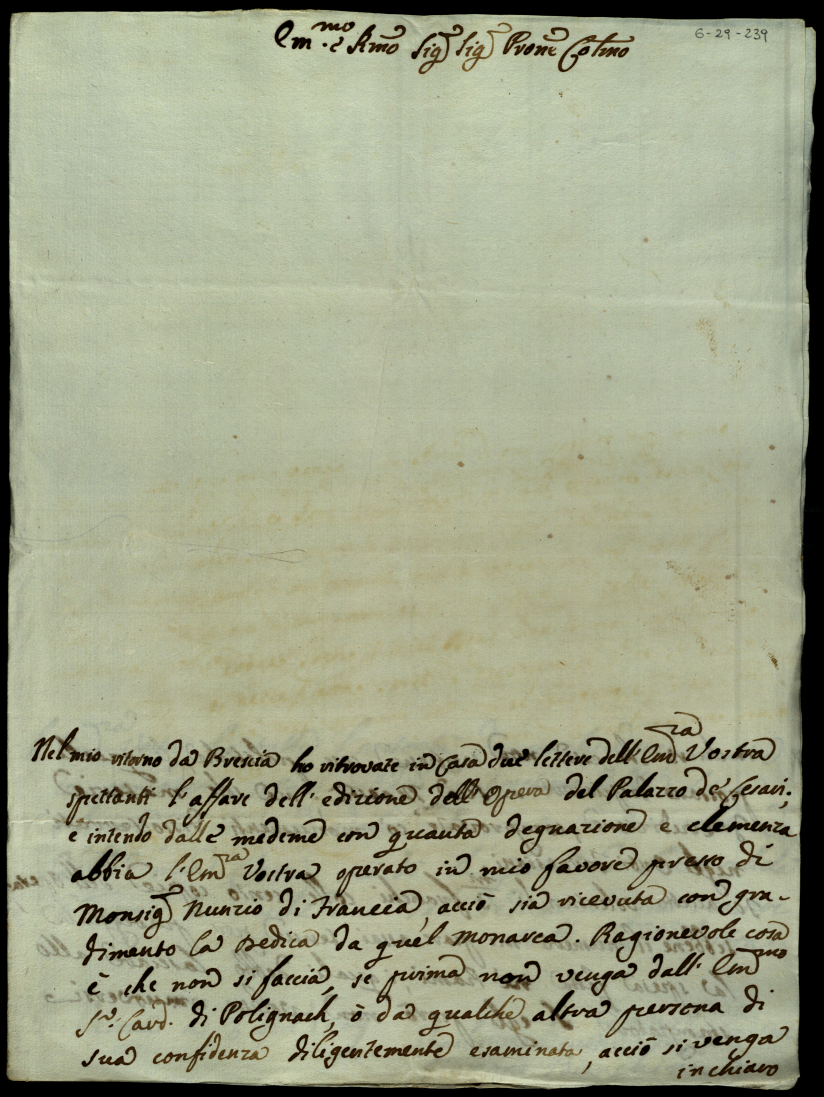 Em.mo e Rmo Sig.r Sig.r Prone Colmo
6-29-239
Nel mio ritorno da Brescia ho ritrovate in Casa due lettere dell'Em.za Vostra
spettanti l'affare dell'edizione dell'Opera del Palazzo de' Cesari;
e intendo dalle medeme con quanta degnazione e clemenza
abbia l'Em.za Vostra operato in mio favore presso di
Monsig.r Nunzio di Francia, acciò sia ricevuta con gra-
dimento la Dedica da quel Monarca. Ragionevole cosa
è che non si faccia, se prima non venga dall'Em.mo
S.r Card. di Polignach, ò da qualche altra persona di
sua confidenza diligentemente esaminata, acciò si venga
in chiaro